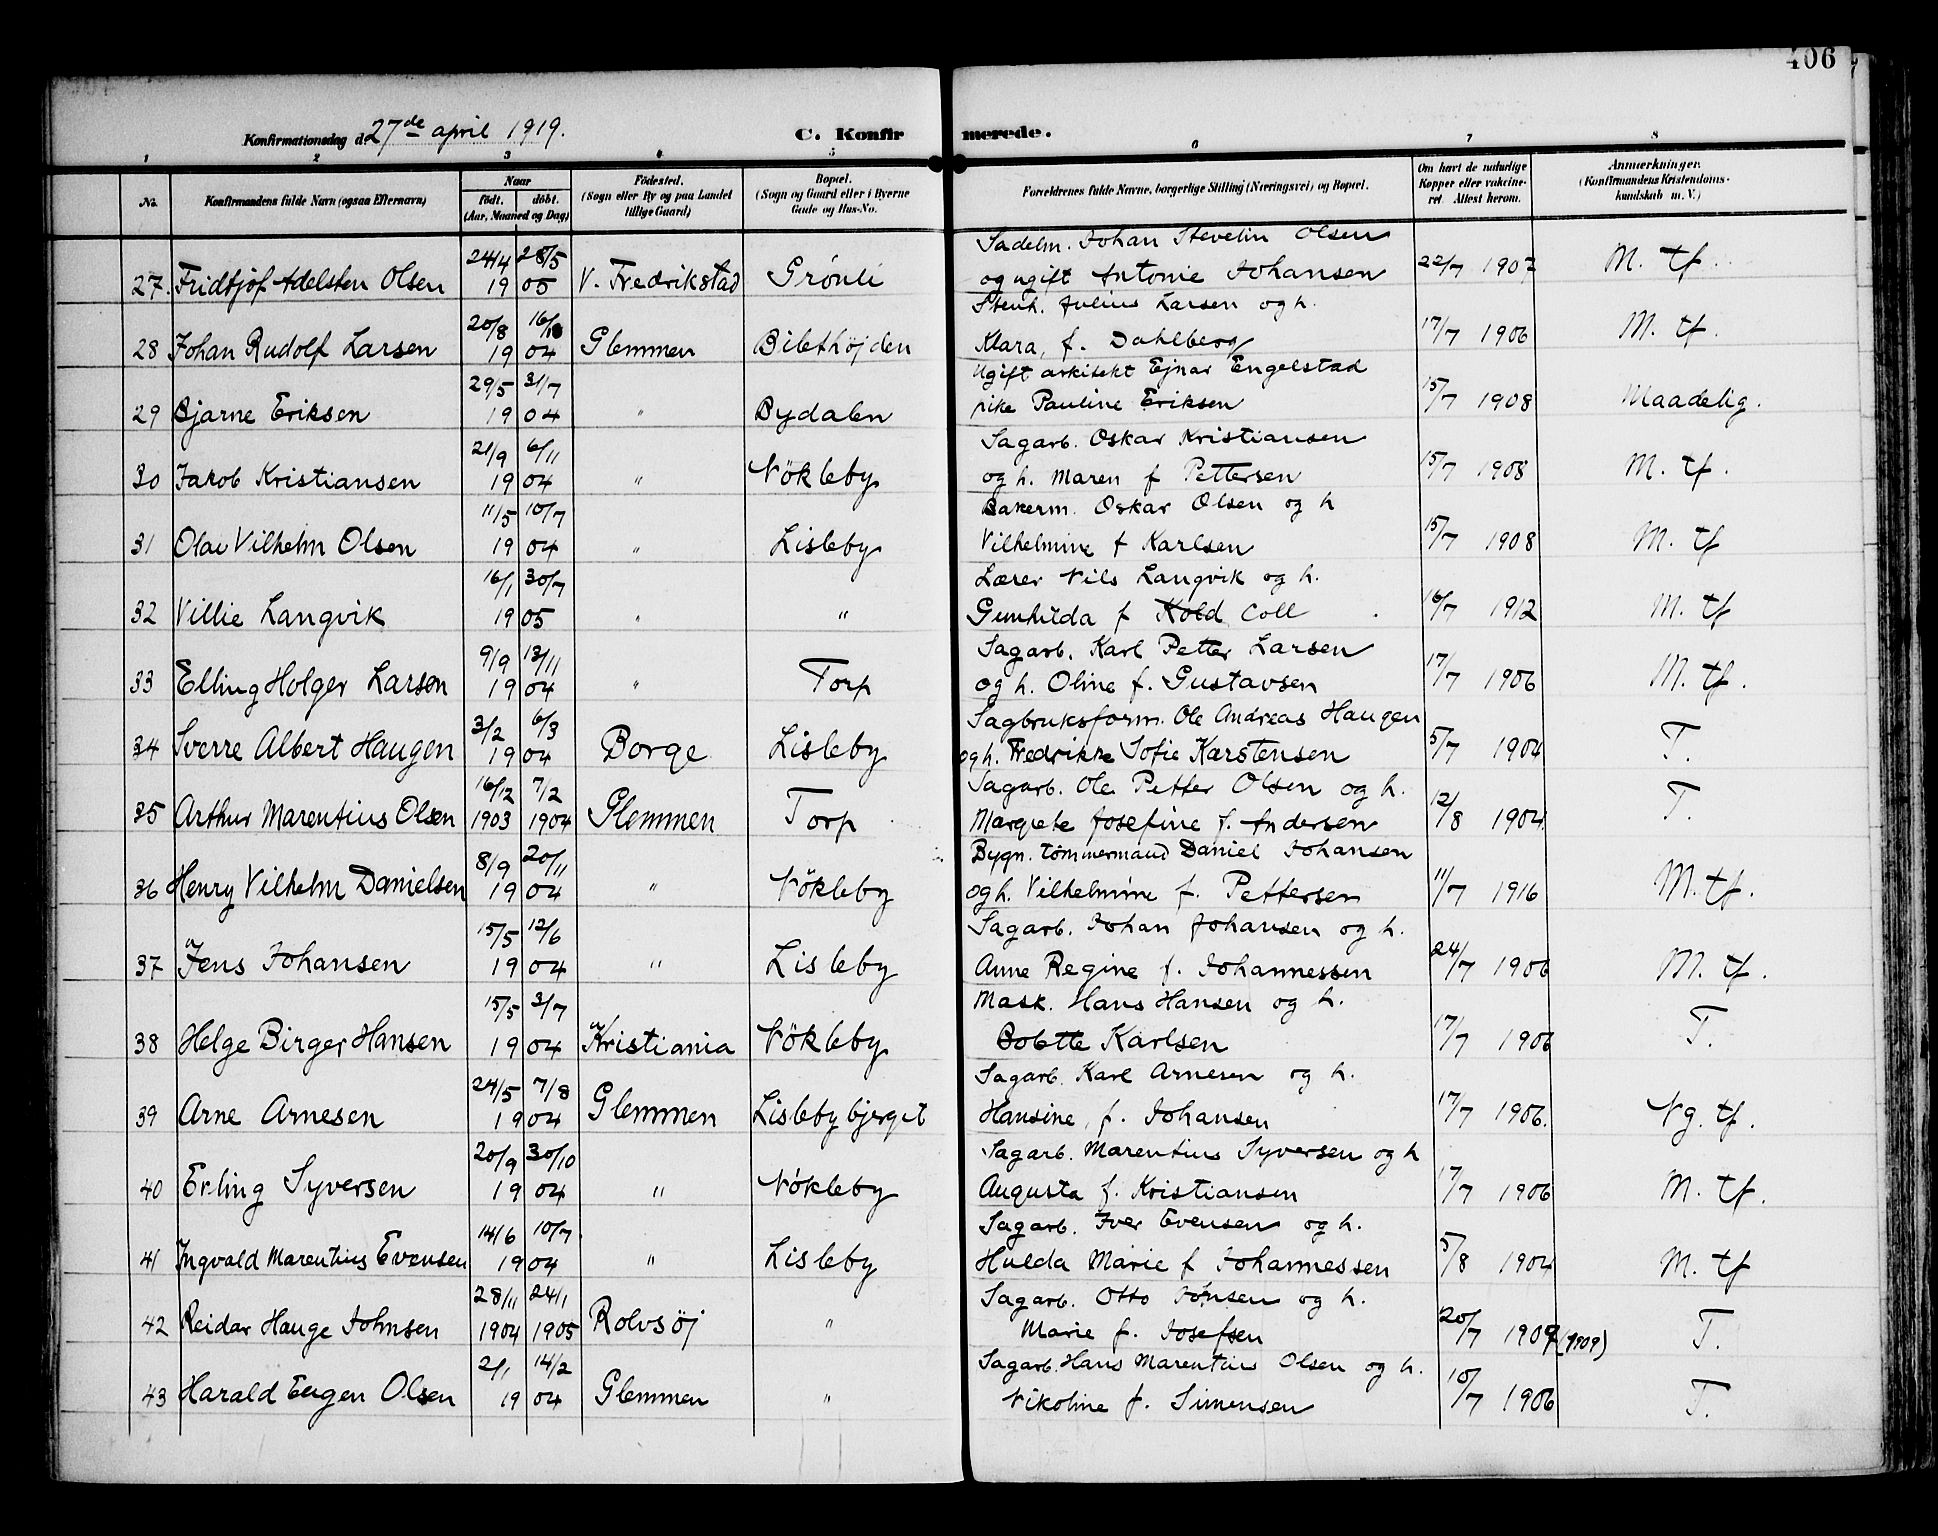 406
Konfirmationsdag d. 27de april 1919.
C. Konfirmerede.
1 2 3 4 5 6 7 8
No. Konfirmandens fulde Navn (ogsaa Efternavn) Naar født. døbt. (Aar, Maaned og Dag) Fødested. (Sogn eller By og paa Landet tillige Gaard) Bopæl. (Sogn og Gaard eller i Byerne Gade og Hus-No. Forældrenes fulde Navne, borgerlige Stilling (Næringsvei) og Bopæl. Om havt de naturlige Kopper eller vaccineret. Attest herom. Anmærkninger. (Konfirmandens Kristendomskundskab m. V.)
24/4 28/5 Sadelm. Johan Stevelin Olsen
27. Fridtjof Adelsten Olsen 19 05 V. Fredrikstad Grönli og ugift Antonie Johansen 22/7 1907 M. tf.
20/8 16/10 Stenh. Julius Larsen og h.
28 Johan Rudolf Larsen 19 04 Glemmen Bilethöjden Klara, f. Dahlberg 17/7 1906 M. tf.
29/5 31/7 Ugift arkitekt Ejnar Engelstad
29 Bjarne Eriksen 19 04 " Bydalen pike Pauline Eriksen 15/7 1908 Maadelig.
21/9 6/11 Sagarb. Oskar Kristiansen
30 Jakob Kristiansen 19 04 " Nökleby og h. Maren f Pettersen 15/7 1908 M. tf.
11/5 10/7 Bakerm. Oskar Olsen og h
31 Olav Vilhelm Olsen 19 04 " Lisleby Vilhelmine f Karlsen 15/7 1908 M. tf
16/1 30/7 Lærer Nils Langvik og h.
32 Villie Langvik 19 05 " " Gunhilda f Kold Coll 16/7 1912 M. tf
9/9 13/11 Sagarb. Karl Petter Larsen
33 Elling Holger Larsen 19 04 " Torp og h. Oline f. Gustavsen 17/7 1906 M. tf.
3/2 6/3 Sagbruksform. Ole Andreas Haugen
34 Sverre Albert Haugen 19 04 Borge Lisleby og h. Fredrikke Sofie Karstensen 5/7 1904 T.
16/12 7/2 Sagarb. Ole Petter Olsen og h.
35 Arthur Marentius Olsen 1903 1904 Glemmen Torp Margrete Josefine f. Andersen 12/8 1904 T.
8/9 20/11 Bygn. tömmermand Daniel Johansen
36 Henry Vilhelm Danielsen 19 04 " Nökleby og h. Vilhelmine f. Pettersen 11/7 1916 M. tf.
15/5 12/6 Sagarb. Johan Johansen og h.
37 Jens Johansen 19 04 " Lisleby Anne Regine f. Johannessen 24/7 1906 M. tf.
15/5 3/7 Mask. Hans Hansen og h.
38 Helge Birger Hansen 19 04 Kristiania Nökleby Bolette Karlsen 17/7 1906 T.
24/5 7/8 Sagarb. Karl Arnesen og h.
39 Arne Arnesen 19 04 Glemmen Lislebybjerget Hansine, f. Johansen 17/7 1906. Ng. tf.
20/9 30/10 Sagarb. Marentius Syversen og h
40 Erling Syversen 19 04 " Nökleby Augusta f. Kristiansen 17/7 1906 M. tf.
14/6 10/7 Sagarb. Iver Evensen og h.
41 Ingvald Marentius Evensen 19 04 " Lisleby Hulda Marie f Johannessen 5/8 1904 M. tf
28/11 24/1 Sagarb. Otto Jonsen og h.
42 Reidar Hauge Johnsen 1904 1905 Rolvsöj " Marie f. Josefsen 20/7 1909 (1909) T.
2/1 14/2 Sagarb. Hans Marentius Olsen og h.
43 Harald Eugen Olsen 19 04 Glemmen " Nikoline f. Simensen 10/7 1906 T.